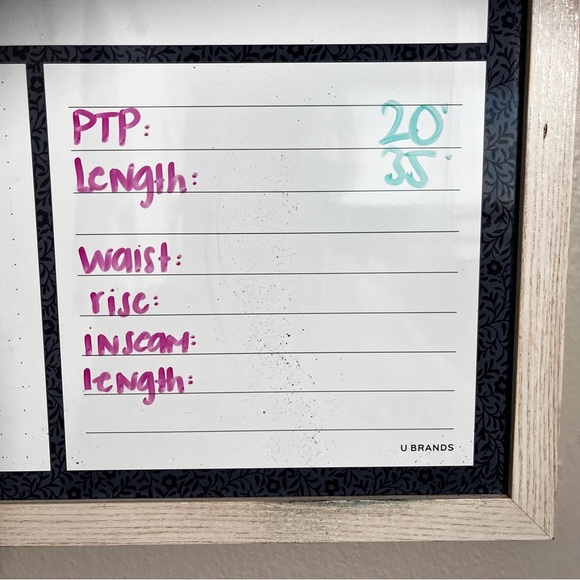 PTP: 20"
Length: 35"
waist:
rise:
inseam:
length:
U BRANDS